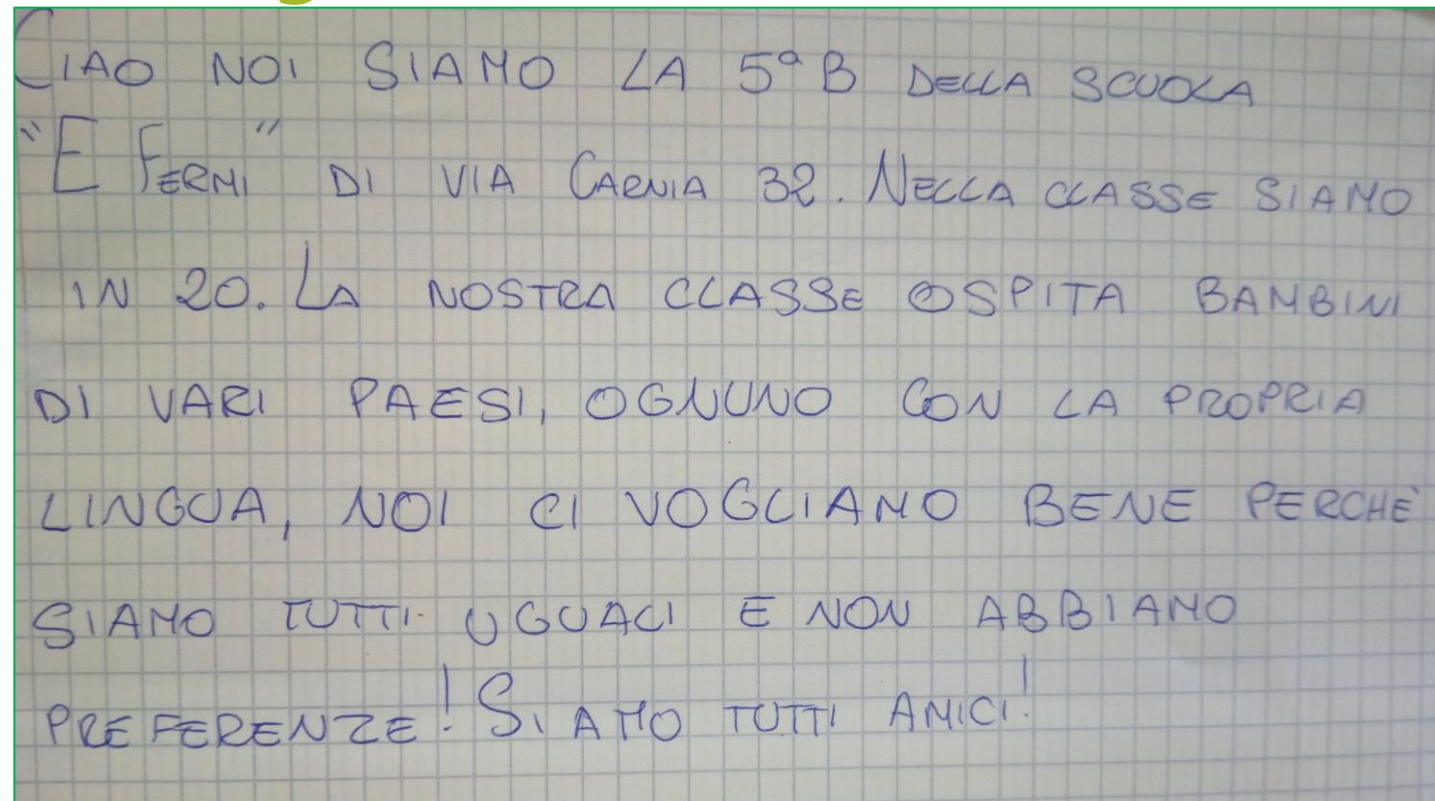 CIAO NOI SIAMO LA 5ª B DELLA SCUOLA
"E FERMI" DI VIA CARNIA 32. NELLA CLASSE SIAMO
IN 20. LA NOSTRA CLASSE OSPITA BAMBINI
DI VARI PAESI, OGNUNO CON LA PROPRIA
LINGUA, NOI CI VOGLIAMO BENE PERCHÈ
SIAMO TUTTI UGUALI E NON ABBIAMO
PREFERENZE! SIAMO TUTTI AMICI!